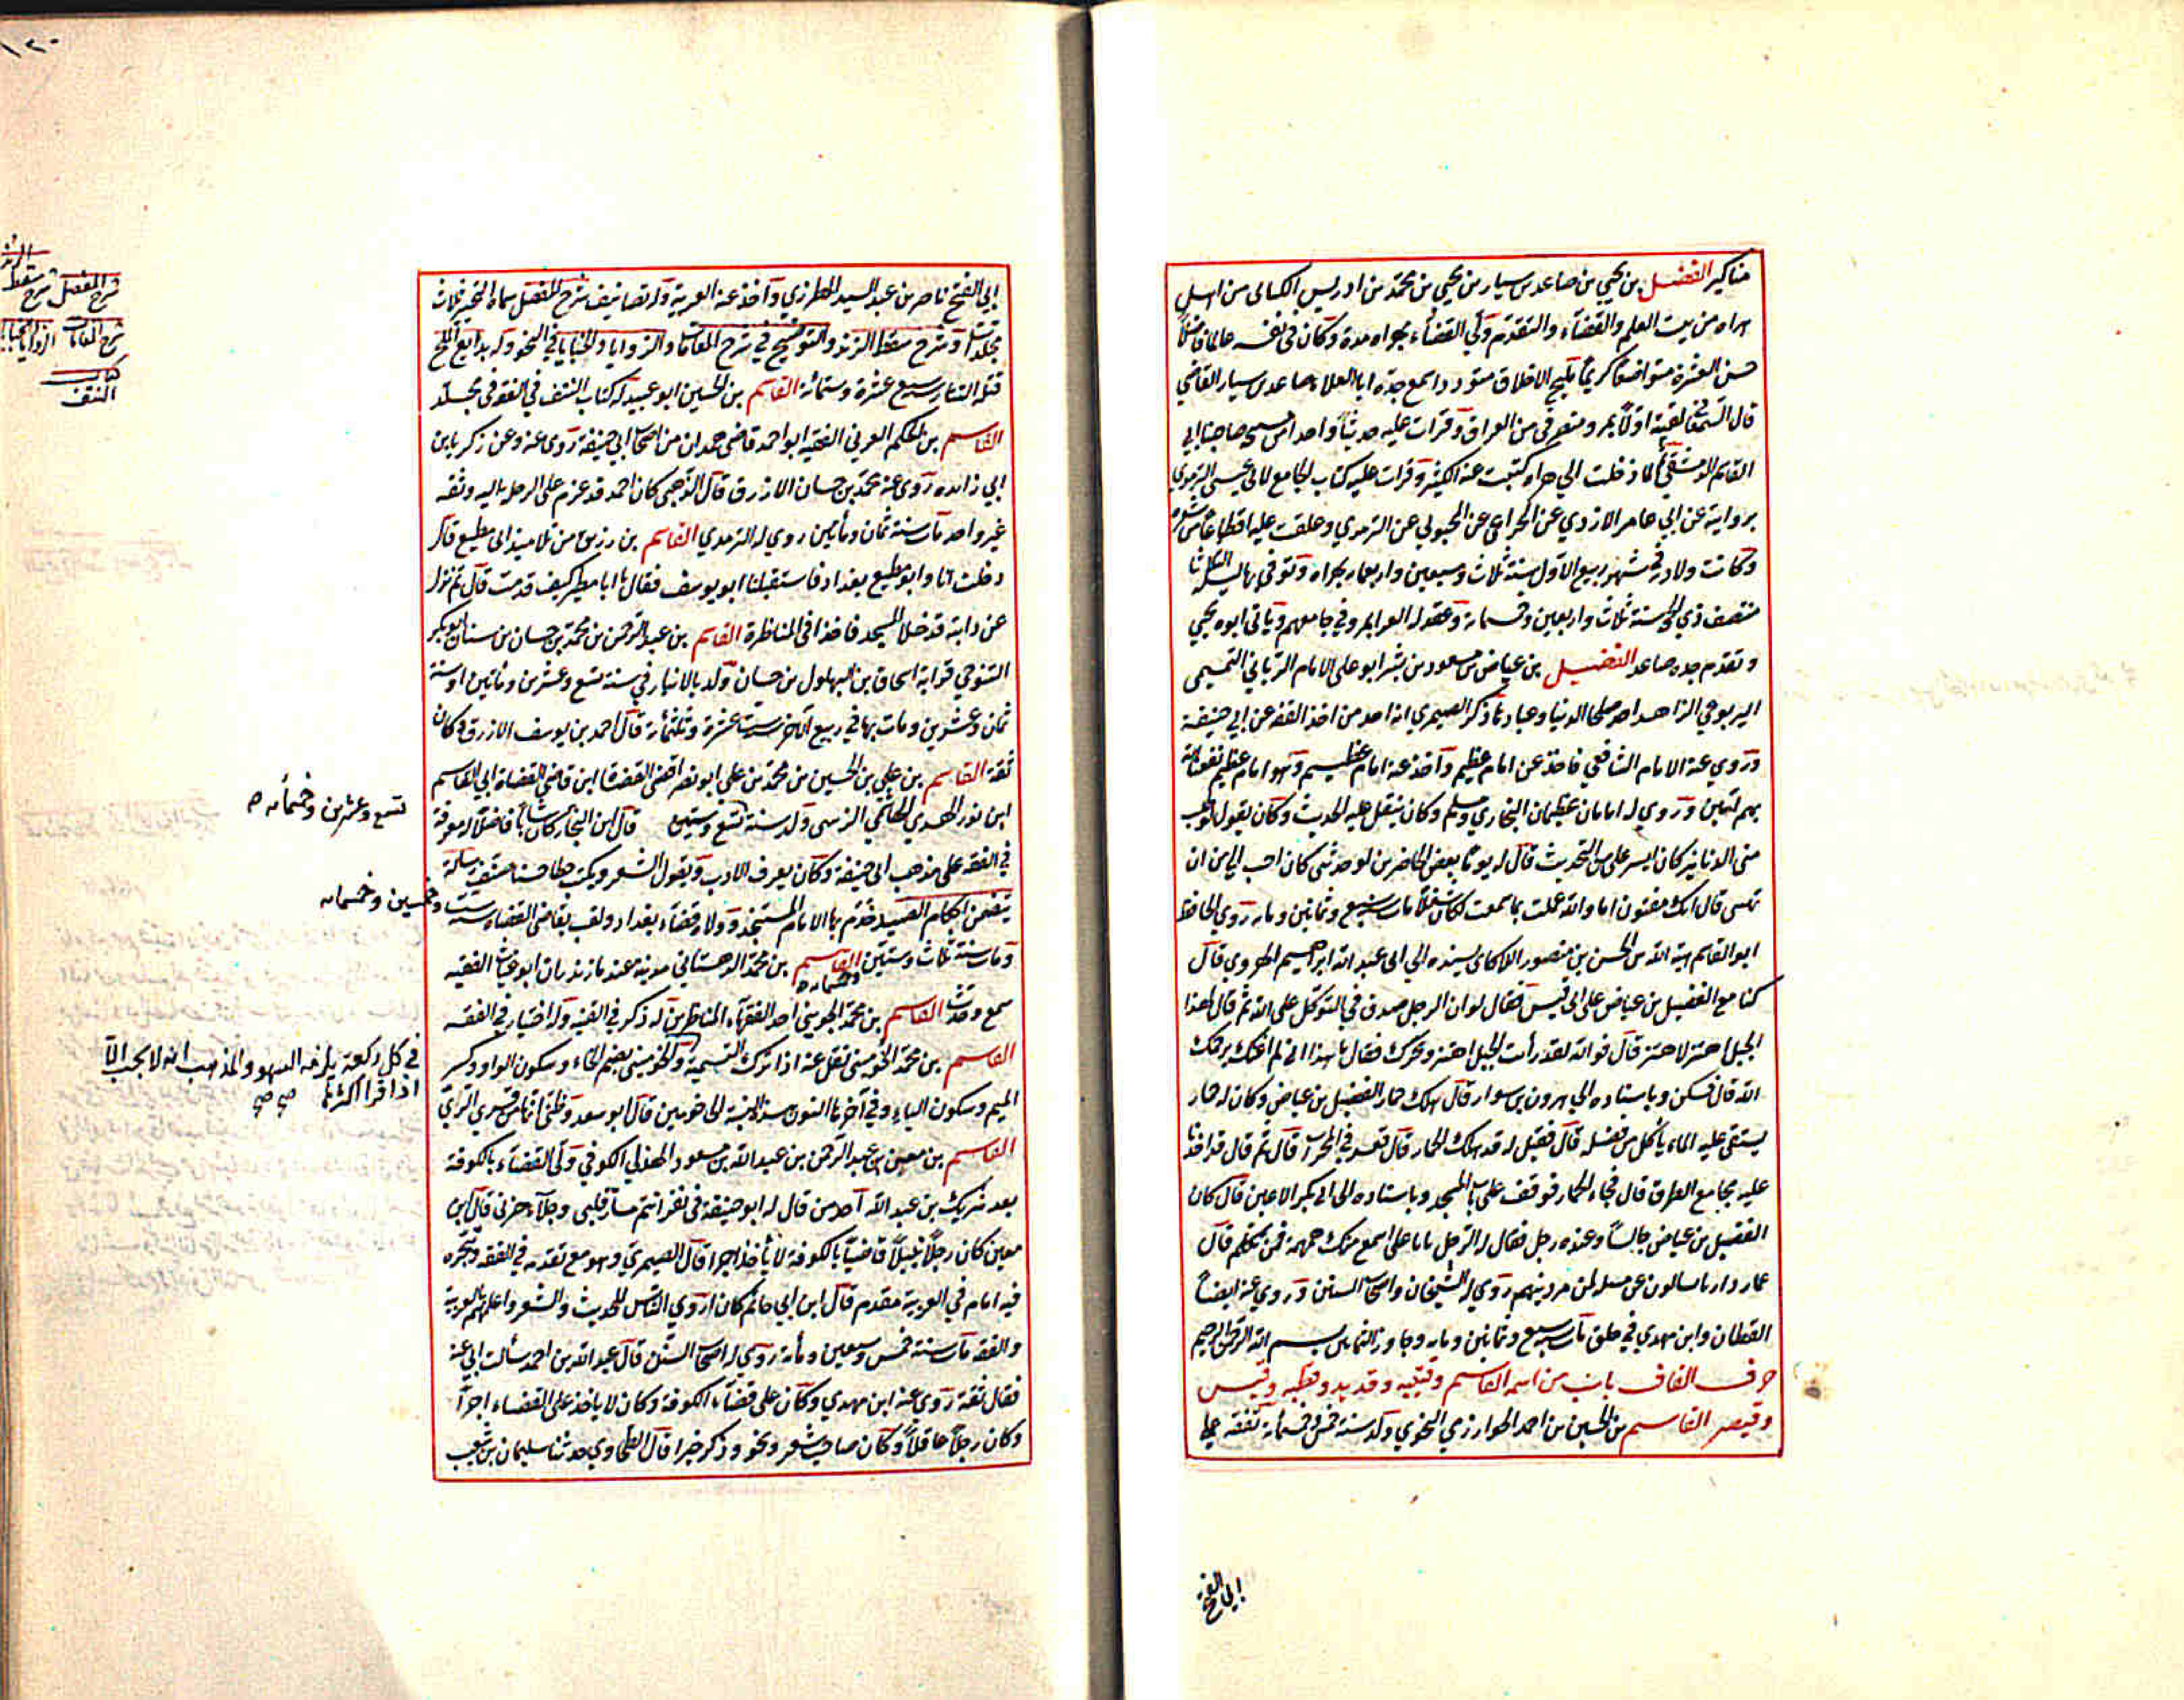 مناكير الفضيل بن يحيى بن صاعد بن سيار بن يحيى بن محمد بن ادريس الكناني من اهل
هراه من بيت العلم والقضاء والتقدم ولي القضاء بهراه مدة وكان في نفسه عالما فاضلا
حسن العشرة متواضعا كريما مليح الاخلاق متوددا سمع جده ابا العلاء صاعد بن سيار القاضي
قال السمعاني لقيته اولا بمرو منصرفي من العراق وقرات عليه حديثا واحدا صاحبنا ابي
القاسم الدمشقي لما دخلت الى هراه كتبت عنه الكثير وقرات عليه كتاب الجامع لابي عيسى الترمذي
بروايته عن ابي عامر الازدي عن الجراحي عن المحبوبي عن الترمذي وعلقت عليه اقطاعا من شعره
وكانت ولادته في شهر ربيع الاول سنة ثلاث وسبعين واربعمايه بهراه وتوفي بها ليلة الثلاثا
منتصف ذي الحجة سنة ثلاث واربعين وخمسماية وياتي ابوه يحيى
وتقدم جده صاعد الفضيل بن عياض بن مسعود بن بشر ابو علي الامام الرباني التميمي
اليربوعي الزاهد احد صلحا الدنيا وعبادها ذكر الصيمري انه احد من اخذ الفقه عن ابي حنيفة
وروي عنه الامام الشافعي فاخذ عن امام عظيم واخذ عنه امام عظيم وهو امام عظيم نفعنا الله
بهم امين وروي له امامان عظيمان البخاري ومسلم وكان يثقل عليه الحديث وكان يقول لو طلب
مني الدنانير كان ايسر علي من التحديث قال له يوما بعض الحاضرين لو حدثني كان احب الي من ان
تهبني قال انك مفتون اما والله لو عملت بما سمعت لكان شغلا مات سنة سبع وثمانين ومايه روي الحافظ
ابو القاسم هبة الله بن الحسن بن منصور اللالكائي بسنده الى ابي عبد الله ابراهيم الهروي قال
كنا مع الفضيل بن عياض على ابي قبيس فقال لو ان الرجل صدق في التوكل على الله ثم قال لهذا
الجبل اهتز لاهتز قال فوالله لقد رأيت الجبل اهتز وتحرك فقال يا هذا اني لم اعنك يرحمك
الله قال فسكن وباسناده الى هرون بن سوار قال هلك حمار الفضيل بن عياض وكان له حمار
يستقي عليه الماء يأكل من فضله قال فقيل له قد هلك الحمار قال فقعد في المحراب قال ثم قال قد اخذنا
عليه مجامع الطرق قال فجاء الحمار فوقف على باب المسجد وباسناده الى ابي بكر الاعين قال كان
الفضيل بن عياض جالسا وعنده رجل فقال له الرجل يا با علي اسمع منك همهمة فمن تكلم قال
عمار دارنا سالوني عن مسلة من امر دينهم روي له الشيخان واصحاب السنن وروي عنه ايضا
القطان وابن مهدي في خلق مات سنة سبع وثمانين ومايه وجاوز الثمانين بسم الله الرحمن الرحيم
حرف القاف باب من اسمه القاسم وقتيبه وقديد وقطبه وقيس
وقيصر القاسم بن الحسين بن احمد الخوارزمي النحوي ولد سنة خمس وخمسمأية تفقه على
ابي الفتح
ابي الفتح ناصر بن عبد السيد المطرزي وأخذ عنه العربية وله تصانيف شرح المفصل سماه التخمير ثلاث
مجلدات وشرح سقط الزند والتوضيح في شرح المقامات والزوايا والخبايا في النحو وله بدايع الملح
قتله التتار سنة سبع عشرة وستمائة القاسم بن الحسين ابو عبيد له كتاب النتف في الفقه في مجلد
القاسم بن الحكم العرني الفقيه ابو احمد قاضي همدان من اصحاب ابي حنيفة روى عنه وعن زكريا بن
ابي زائده روى عنه محمد بن حسان الازرق قال الذهبي كان احمد قد عزم على الرحلة اليه وثقه
غير واحد مات سنة ثمان ومأتين روي له الترمذي القاسم بن رزين من تلاميذ ابي مطيع قال
دخلت انا وابو مطيع بغداد فاستقبلنا ابو يوسف فقال يا ابا مطيع كيف قدمت قال ثم نزل
عن دابته فدخلا المسجد فاخذا في المناظرة القاسم بن عبد الرحمن بن محمد بن حسان بن سنان ابو بكر
التنوخي قرابة اسحاق بن البهلول بن حسان ولد بالانبار في سنة تسع وعشرين ومأتين او سنة
ثمان وعشرين ومات بها في ربيع الاخر سنة ست عشرة وثلثمأية قال احمد بن يوسف الازرق وكان
ثقة القاسم بن علي بن الحسين بن محمد بن علي ابو نصر اقضى القضاة ابن قاضي القضاة ابي القاسم
ابن نور الهدى الزينبي ولد سنة تسع وستين قال ابن النجار كان شابا فاضلا له معرفة
في الفقه على مذهب ابي حنيفة وكان يعرف الادب ويقول الشعر ويكتب خطا حسنا صنف رسالة
يتضمن احكام الصيد خدم بها الامام المستنجد وولاه قضاء بغداد ولقب بقاضي القضاة سنة ست وخمسين وخمسمايه
ومات سنة ثلاث وستين وخمسمايه القاسم بن محمد الدهستاني مدينة عند مازندران ابو غياث الفقيه
سمع وحدث القاسم بن محمد الجويني احد الفقهاء المناظرين له ذكر في القنية وله اختيار في الفقه
القاسم بن محمد الخوميني نقل عنه اذا ترك التسمية والخوميني بضم الخاء وسكون الواو وكسر
الميم وسكون الياء وفي آخرها النون هذه النسبة الى خومين قال ابو سعد وظني انها من قرى الري
القاسم بن معين بن عبد الرحمن بن عبد الله بن مسعود الهذلي الكوفي ولي القضاء بالكوفة
بعد شريك بن عبد الله احد من قال له ابو حنيفة في نفر انتم مسار قلبي وجلاء حزني قال ابن
معين كان رجلا نبيلا قاضيا بالكوفة لا يأخذ اجرا قال الصيمري وهو مع تقدمه في الفقه وتبحره
فيه امام في العربية مقدم قال ابن ابي حاتم كان اروى الناس للحديث والشعر واعلمهم بالعربية
والفقه مات سنة خمس وسبعين ومأية روى له اصحاب السنن قال عبد الله بن احمد سألت ابي عنه
فقال ثقة روى عنه ابن مهدي وكان على قضاء الكوفة وكان لا ياخذ على القضاء اجرا
وكان رجلا عاقلا وكان صاحب شعر ونحو وذكر خيرا قال الطحاوي حدثنا سليمان بن شعيب
١٢٠
شرح المفصل شرح سقط الزند
شرح المقامات الزوايا والخبايا
كتاب
النتف
تسع وعشرين وخمسمأيه
في كل ركعة يلزمه السهو والمذهب انه لا يجب الا
اذا قرا اكثرها صح صح